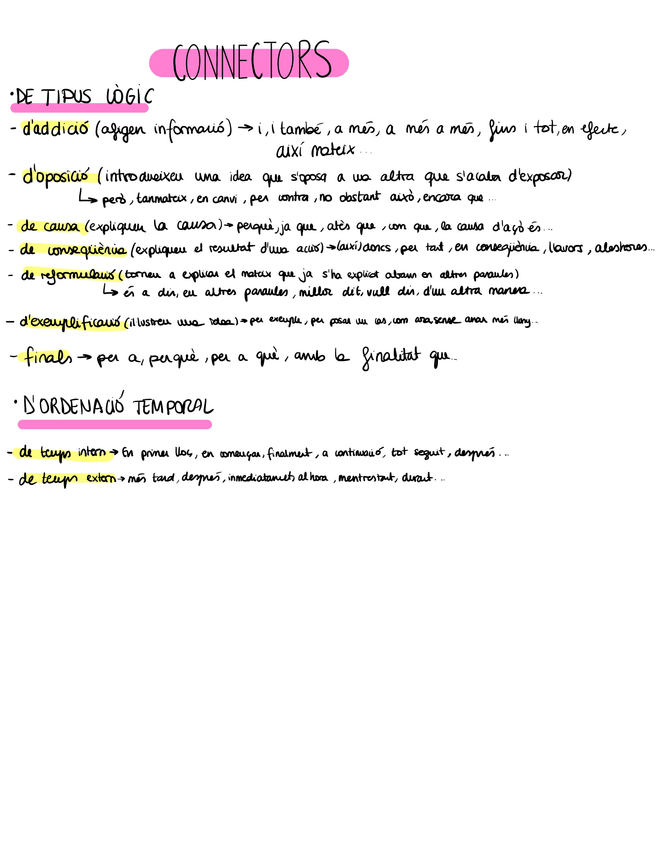 CONNECTORS
• DE TIPUS LÒGIC
- d'addició (afigen informació) → i, i també, a més, a més a més, fins i tot, en efecte,
així mateix...
- d'oposició (introdueixen una idea que s'oposa a una altra que s'acaba d'exposar)
↳ però, tanmateix, en canvi, per contra, no obstant això, encara que ...
- de causa (expliquen la causa) → perquè, ja que, atès que, com que, la causa d'açò és...
- de conseqüència (expliquen el resultat d'una acció) → (així) doncs, per tant, en conseqüència, llavors, aleshores...
- de reformulació (tornen a explicar el mateix que ja s'ha explicat abans en altres paraules)
↳ és a dir, en altres paraules, millor dit, vull dir, d'una altra manera ...
- d'exemplificació (il·lustren una idea) → per exemple, per posar un cas, com ara, sense anar més lluny...
- finals → per a, perquè, per a què, amb la finalitat que...
• D'ORDENACIÓ TEMPORAL
- de temps intern → En primer lloc, en començar, finalment, a continuació, tot seguit, després ...
- de temps extern → més tard, després, inmediatament, al hora, mentrestant, durant...